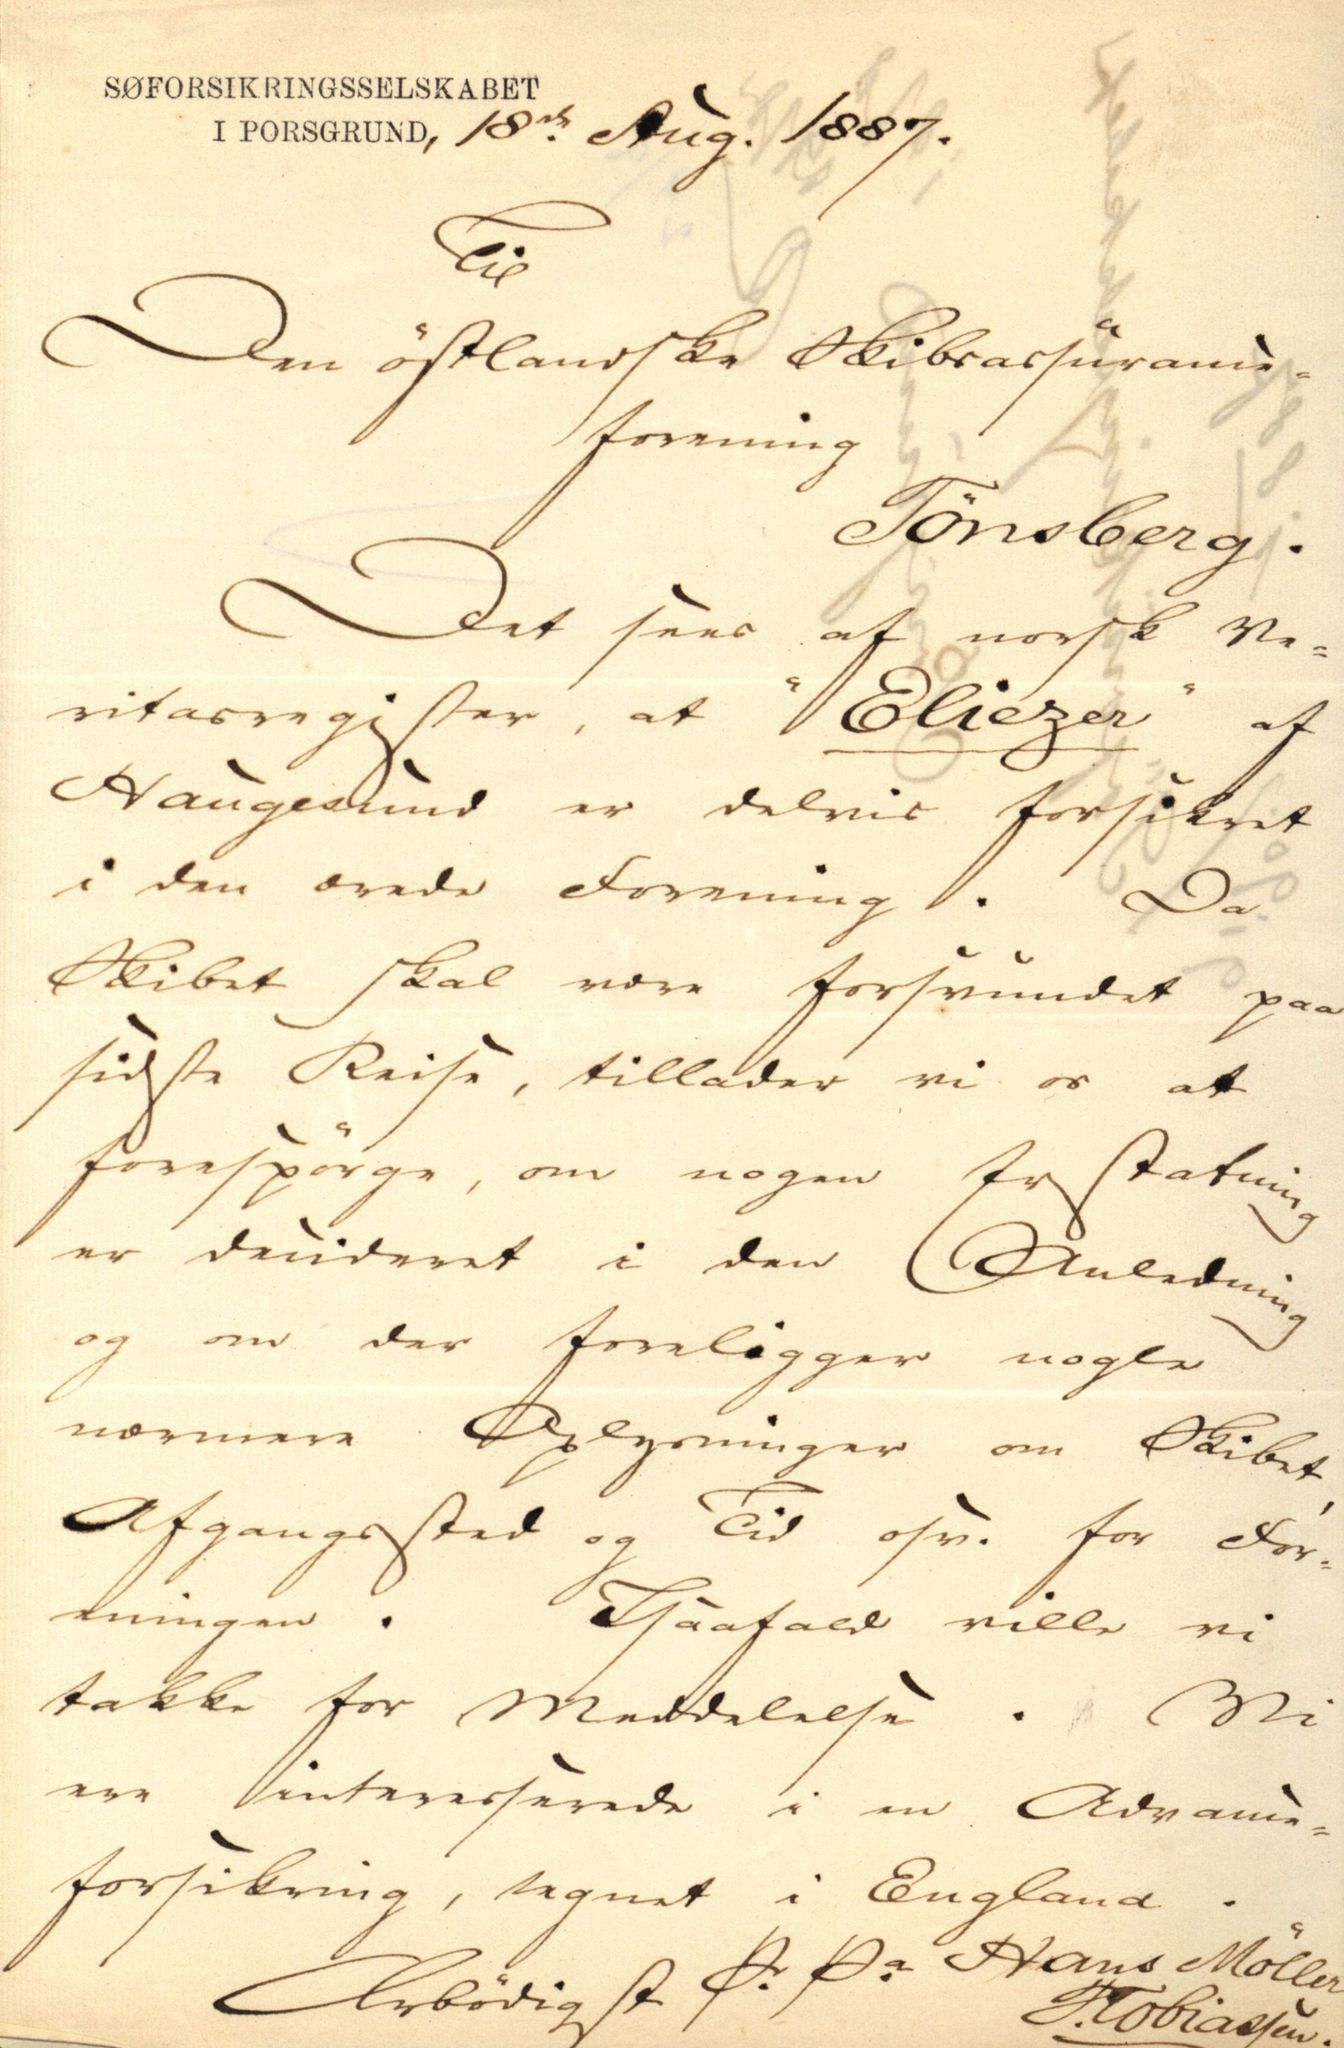 SØFORSIKRINGSSELSKABET
I PORSGRUND, 18de Aug. 1887.
Til
Den östlandske Skibsassurance-
forening
Tönsberg.
Det sees af norsk Ve-
ritasregister, at "Eliezer" af
Haugesund er delvis forsikret
i den ærede Forening. Da
Skibet skal være forsvundet paa
sidste Reise, tillader vi os at
forespörge, om nogen Erstatning
er decideret i den Anledning
og om der foreligger nogle
nærmere Oplysninger om Skibet,
Afgangssted og Tid osv. for For-
eningen. Isaafald ville vi
takke for Meddelelse. Vi
ere interesserede i en Advance-
forsikring, tegnet i England.
Ærbödigst Pr. Pa Hans Möller
F. Tobiassen.